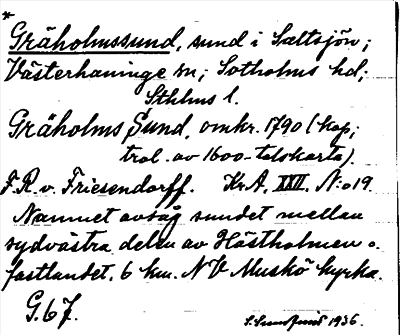 *
Gräholmssund, sund i Saltsjön;
Västerhaninge sn; Sotholms hd;
Sthlms l.
Gräholms Sund, omkr. 1790 (kop;
trol. av 1600-talskarta).
F.R. v. Friesendorff. Kr.A, XXII. N:o 19.
Namnet avsåg sundet mellan
sydvästra delen av Hästholmen o.
fastlandet, 6 km. NV Muskö kyrka.
G. 67.
1936.